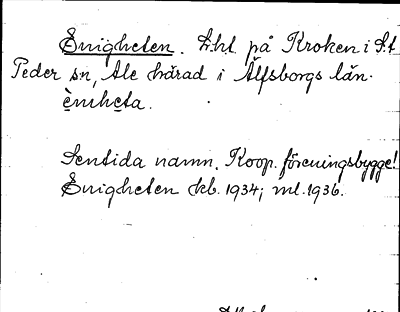 Enigheten. Lht på Kroken i St
Peder sn, Ale härad i Älfsborgs län.
ènihe̬ta.
Sentida namn. Koop. föreningsbygge!
Enigheten kb. 1934; ml. 1936.